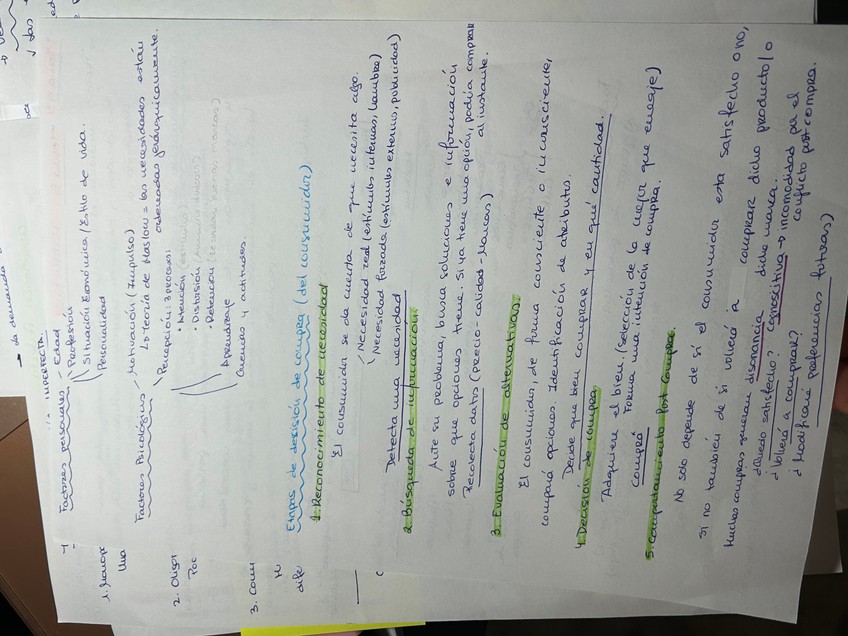 IMPERFECTA.
Factores personales
Edad
Profesión
Situación Económica/Estilo de vida.
Personalidad
Factores Psicológicos
Motivación (Impulso)
La Teoría de Maslow = las necesidades están
ordenadas jerárquicamente.
Percepción: 3 procesos:
• Atención
• Distorsión
• Retención
Aprendizaje
Creencias y actitudes.
Etapas de decisión de compra (del consumidor)
1. Reconocimiento de necesidad
El consumidor se da cuenta de que necesita algo.
Necesidad real (estímulos internos, hambre)
Necesidad forzada (estímulos externos, publicidad)
Detecta una necesidad
2. Búsqueda de información.
Ante su problema, busca soluciones e información
sobre que opciones tiene. Si ya tiene una opción, podría comprar
al instante.
Recolecta datos (precio - calidad - Marcas)
3. Evaluación de alternativas.
El consumidor, de forma consciente o inconsciente,
compará opciones. Identificación de atributos.
Decide que bien comprar y en qué cantidad.
4. Decisión de compra
Adquieren el bien (Selección de la mejor que encaje)
compra Forma una intención de compra.
5. Comportamiento Post Compra.
No solo depende de si el consumidor esta satisfecho o no,
si no también de si volverá a comprar dicho producto/o
dicha marca.
Muchas compras generan disonancia cognoscitiva → incomodidad por el
conflicto postcompra.
¿Quedo satisfecho?
¿Volverá a comprar?
¿Modificaré preferencias futuras?
la demanda
1. Monop
Una
2. Oligop
Poc
3. Com